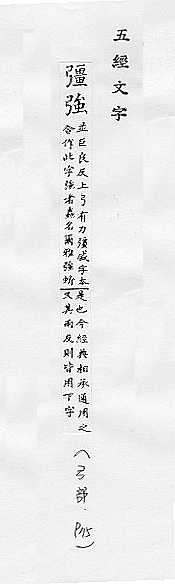 五經文字
彊強
並巨良反上弓有力彊盛字
合作此字強者蟲名爾雅強蚚
是也今經典相承通用之
又其兩反則皆用下字
(弓部. P75)